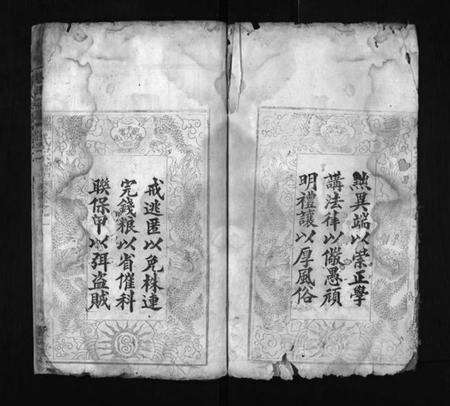 黜異端以崇正學
講法律以儆愚頑
明禮讓以厚風俗
戒逃匿以免株連
完錢粮以省催科
聨保甲以弭盜賊